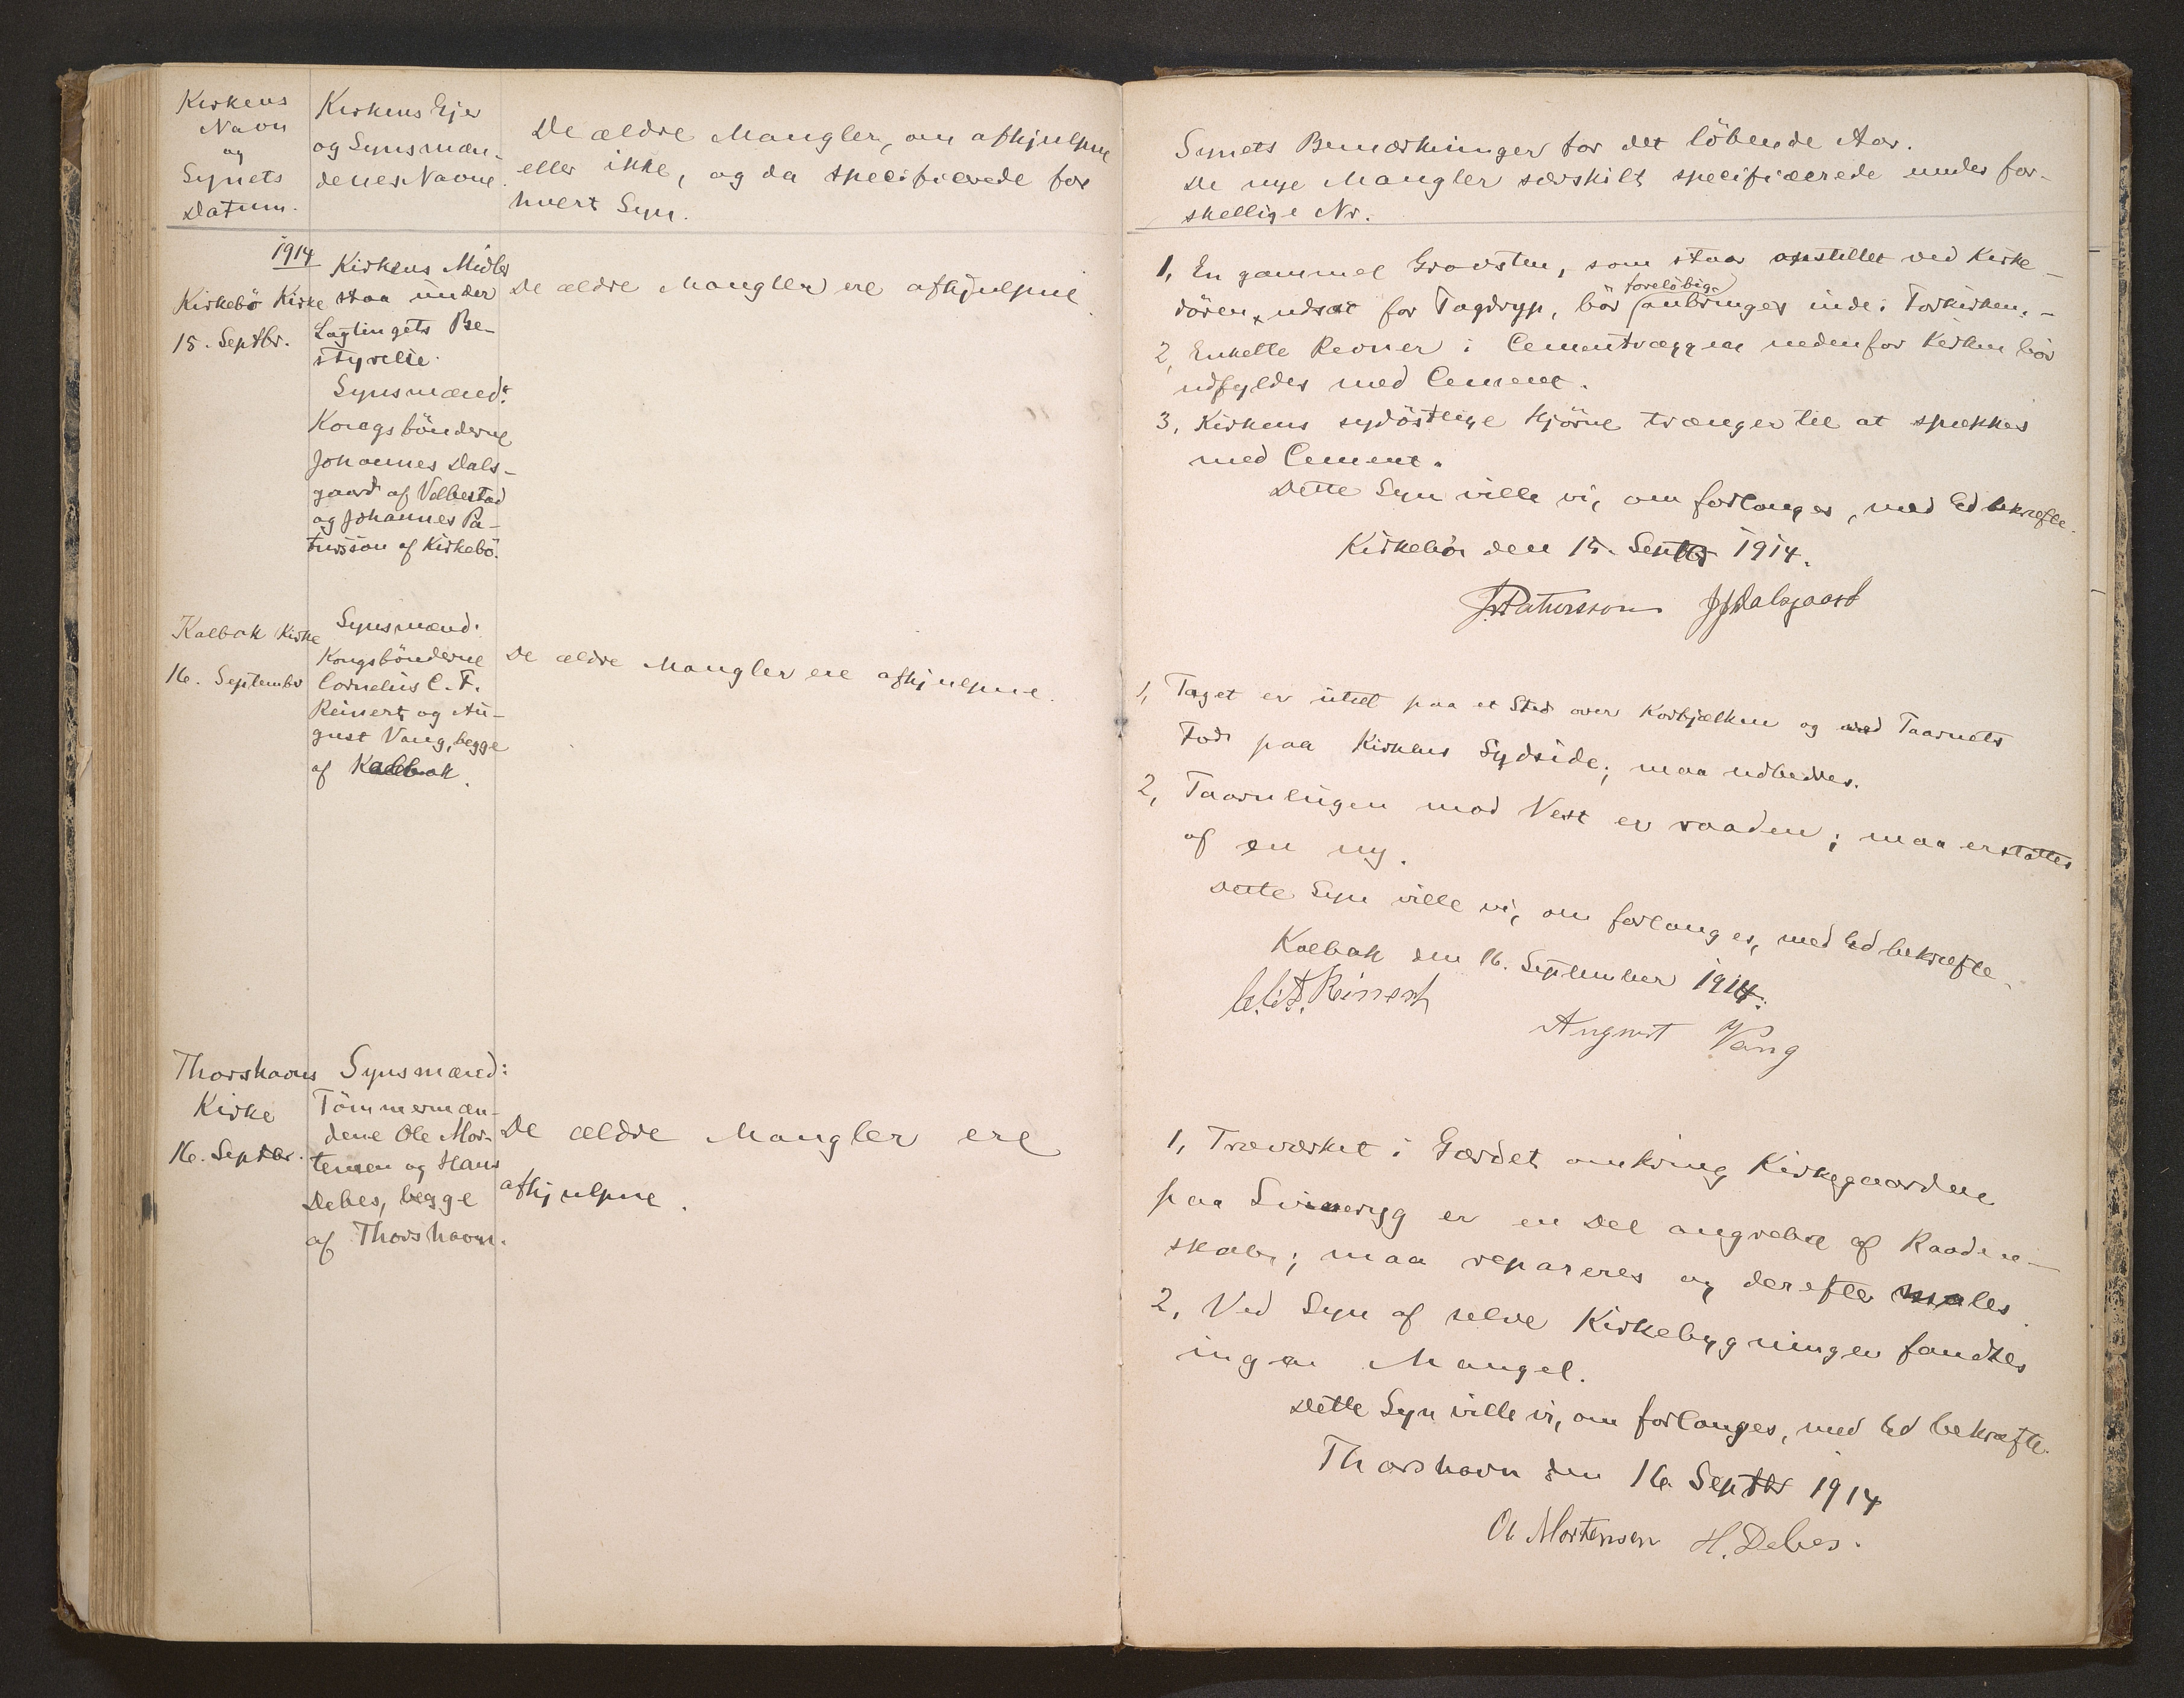 Kirkens
Navn
og
Synets
Datum.
Kirkens Ejer
og Synsmæn-
denes Navne.
De ældre Mangler, om afhjulpne
eller ikke, og da specificerede for
hvert Syn.
1914
Kirkebö Kirke
15. Septbr.
Kirkens Midler
staa under
Lagtingets Be-
styrelse.
Synsmænd:
Kongsbönderne
Johannes Dals-
gaard af Velbestad
og Johannes Pa-
tursson af Kirkebö.
De ældre Mangler ere afhjulpne.
Kalbak Kirke
16. September
Synsmænd:
Kongsbönderne
Cornelius C. F.
Reinert og Au-
gust Vang, begge
af Kalbak.
De ældre Mangler ere afhjulpne.
Thorshavns
Kirke
16. Septbr.
Synsmænd:
Tömmermæn-
dene Ole Mor-
tensen og Hans
Debes, begge
af Thorshavn.
De ældre Mangler ere
afhjulpne.
Synets Bemærkninger for det löbende Aar.
De nye Mangler særskilt specificerede under for-
skellige Nr.
1, En gammel Gravsten, som staar opstillet ved Kirke-
foreløbig
dören, udsat for Tagdryp, bör anbringes inde i Forkirken. -
2, Enkelte Revner i Cementvæggen nedenfor Kirken bör
udfyldes med Cement.
3, Kirkens sydöstlige Hjörne trænger til at spækkes
med Cement.
Dette Syn ville vi, om forlanges, med Ed bekræfte.
Kirkebö den 15. Septbr 1914.
J. Patursson JJDalsgaard
1, Taget er utæt paa et Sted over Korbjælken og ved Taarnets
Fod paa Kirkens Sydside; maa udbedres.
2, Taarnlugen mod Vest er raaden; maa erstattes
af en ny.
Dette Syn ville vi, om forlanges, med Ed bekræfte.
Kalbak den 16. September 1914.
C.C.F. Reinert
August Vang
1, Træværket i Gærdet omkring Kirkegaardene
paa Svineryg er en Del angrebne af Raaden-
skab; maa repareres og derefter males.
2, Ved Syn af selve Kirkebygningen fandtes
ingen Mangel.
Dette Syn ville vi, om forlanges, med Ed bekræfte.
Thorshavn den 16 Septbr 1914
Ol Mortensen H. Debes.